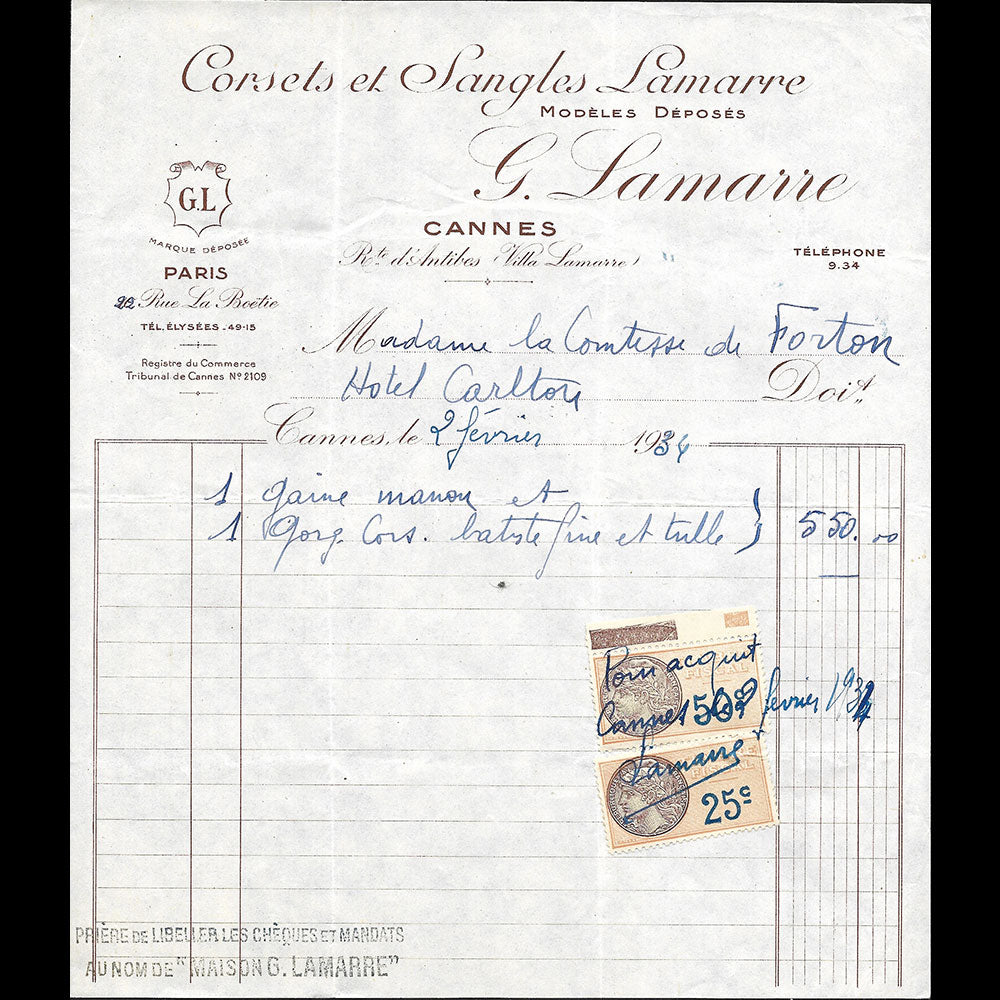 Corsets et Sangles Lamarre
MODÈLES DÉPOSÉS
G. Lamarre
G.L
MARQUE DÉPOSÉE
CANNES
Rte d'Antibes (Villa Lamarre)
TÉLÉPHONE
9.34
PARIS
22 Rue La Boëtie
TÉL. ÉLYSÉES - 49-15
Registre du Commerce
Tribunal de Cannes Nº 2109
Madame la Comtesse de Forton
Hotel Carlton Doit
Cannes, le 2 février 1934
1 gaine manon et
1 Gorg. Cors. batiste fine et tulle } 550.00
Pour acquit
FISCAL
50c
Cannes le 2 février 1934
Lamarre
FISCAL
25c
PRIÈRE DE LIBELLER LES CHÈQUES ET MANDATS
AU NOM DE "MAISON G. LAMARRE"